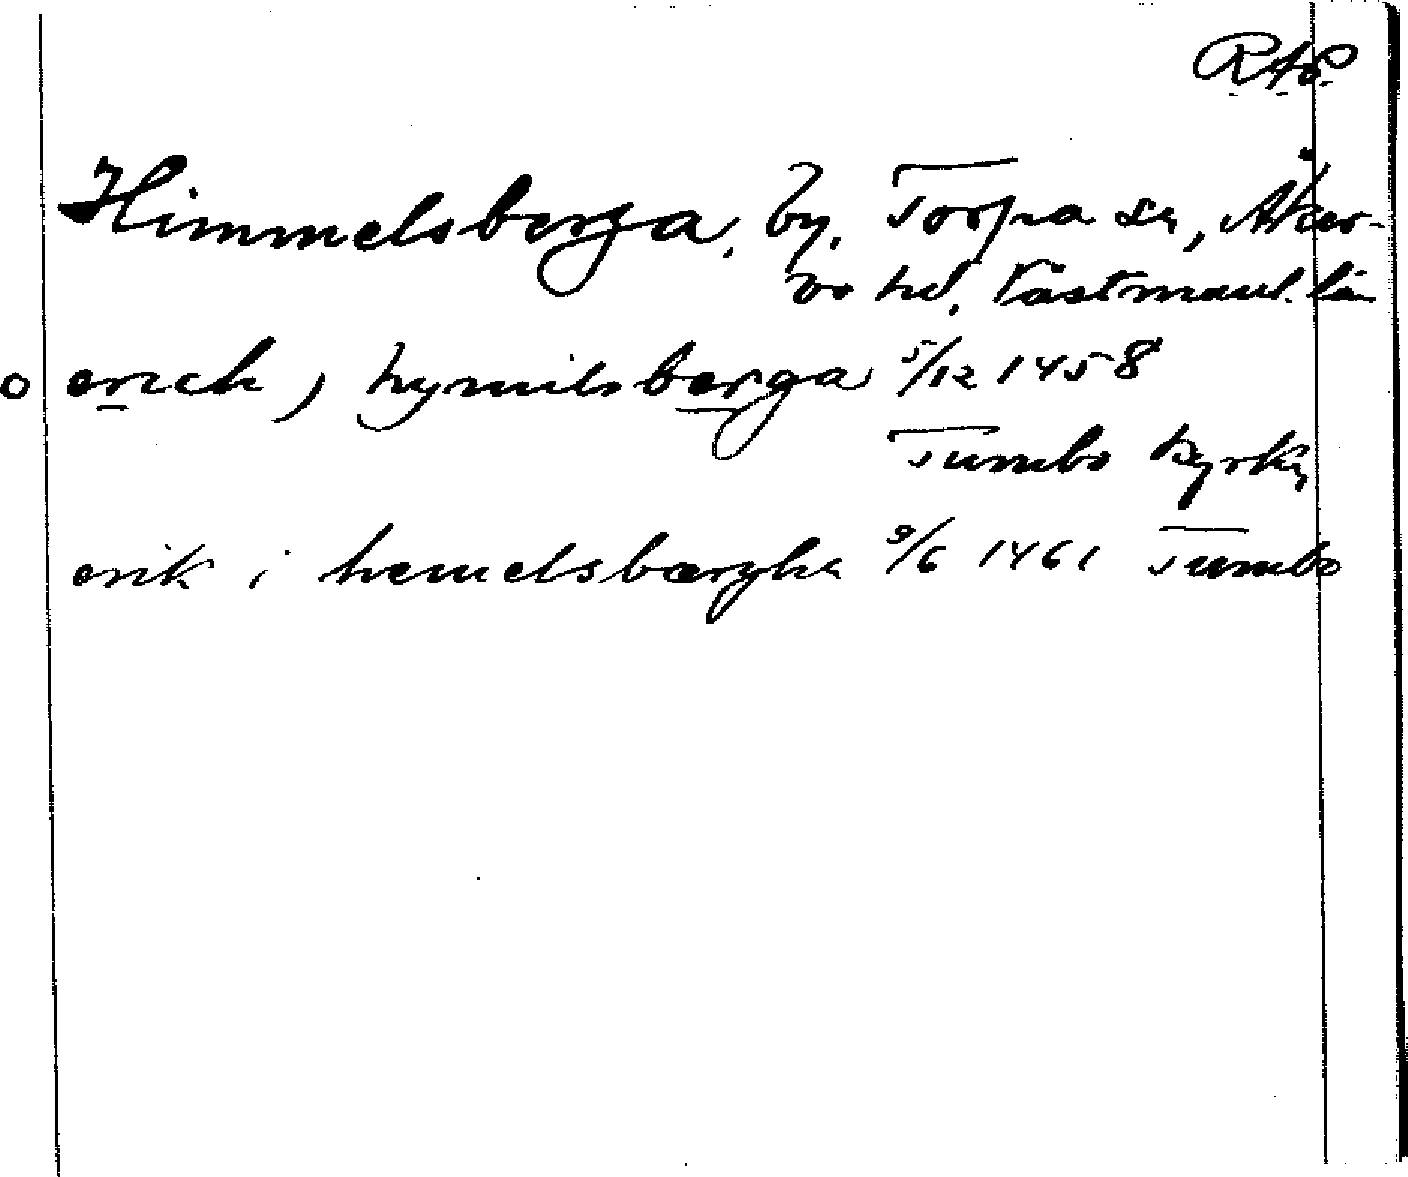 RAP.
Himmelsberga, by, Torpa sn, Åker-
bo hd, Västmanl. län
o erich j hymilsberga 5/12 1458
Tumbo kyrka
erik i hemelsbærgha 9/6 1461 Tumbo